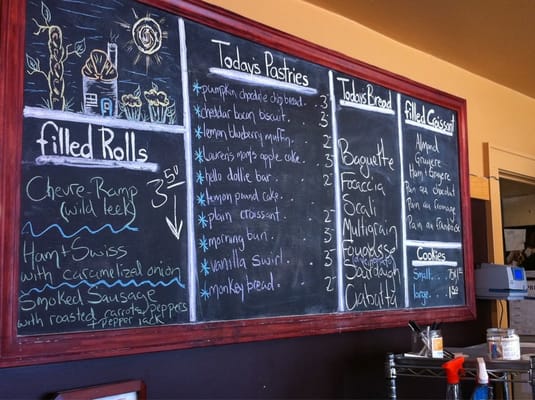 filled Rolls
Chevre-Ramp 3.50
(wild leek)
Ham + Swiss
with caramelized onion
Smoked Sausage
with roasted carrots, peppers
+ pepper jack
Today's Pastries
pumpkin chocolate chip bread. 3
cheddar bacon biscuit. 3
lemon blueberry muffin. 2
lauren's mom's apple cake. 3
hello dollie bar. 2
lemon pound cake.
plain croissant. 2
morning bun. 3
vanilla swirl. 2
monkey bread. 2
Today's Bread
Baguette
Focaccia
Scali
Multigrain
Fougasse
Sourdough
Ciabatta
filled Croissant
Almond
Gruyere
Ham + Gruyere
Pain au chocolat
Pain au fromage
Pain au framboise
Cookies
Small
large 1.50